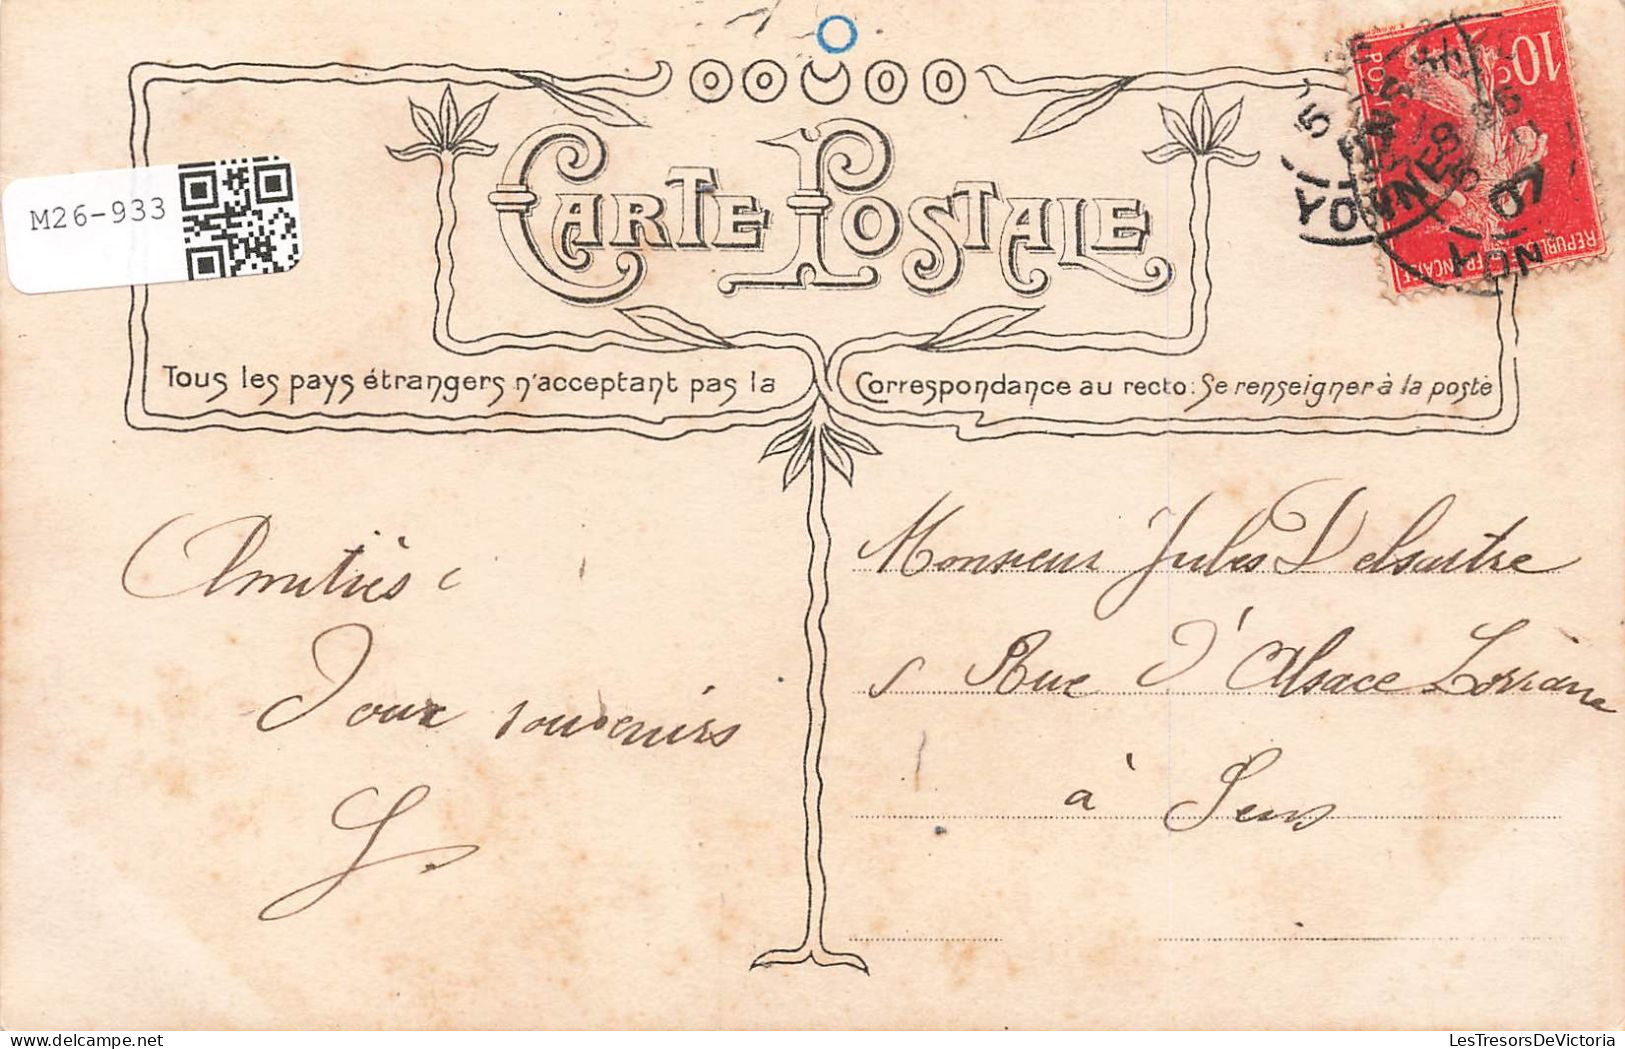 M26-933
CARTE POSTALE
10c
POSTES
REPUBLIQUE FRANÇAISE
SENS
YONNE
07
Tous les pays étrangers n'acceptant pas la Correspondance au recto: Se renseigner à la poste
Amitiés
Doux souvenirs
Monsieur Jules Delsaitre
Rue d'Alsace Lorraine
à Sens
LesTresorsDeVictoria